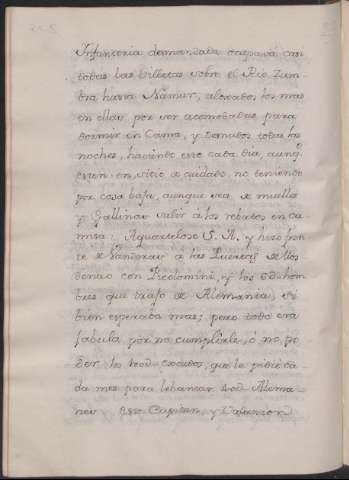 Infanteria desmandada ocupavá con
todas las Villetas sobre el Rio Zam-
bra hasta Námur; alocados los mas
en ellas por ver acomodadas para
dormir en Cama, y Desnudos todas las
noches, haviendo eso cada dia, aunq.
eran en sitio de cuidado, no teniendo
por cosa baja, aunque sea de mulas
y Gallinas salir á los rebatos en ca-
misa: Aquartelose S. A. y hizo fren
te de Vanderas á las
con Picolomini, y los 8 D. hom-
bres que trajo de Alemania, si
bien esperaba mas; pero todo era
fabula por no cumplirle, ó no po-
der los escudos, que le pidió ca-
da mes para lebantar Alema-
nes este Capitan, y